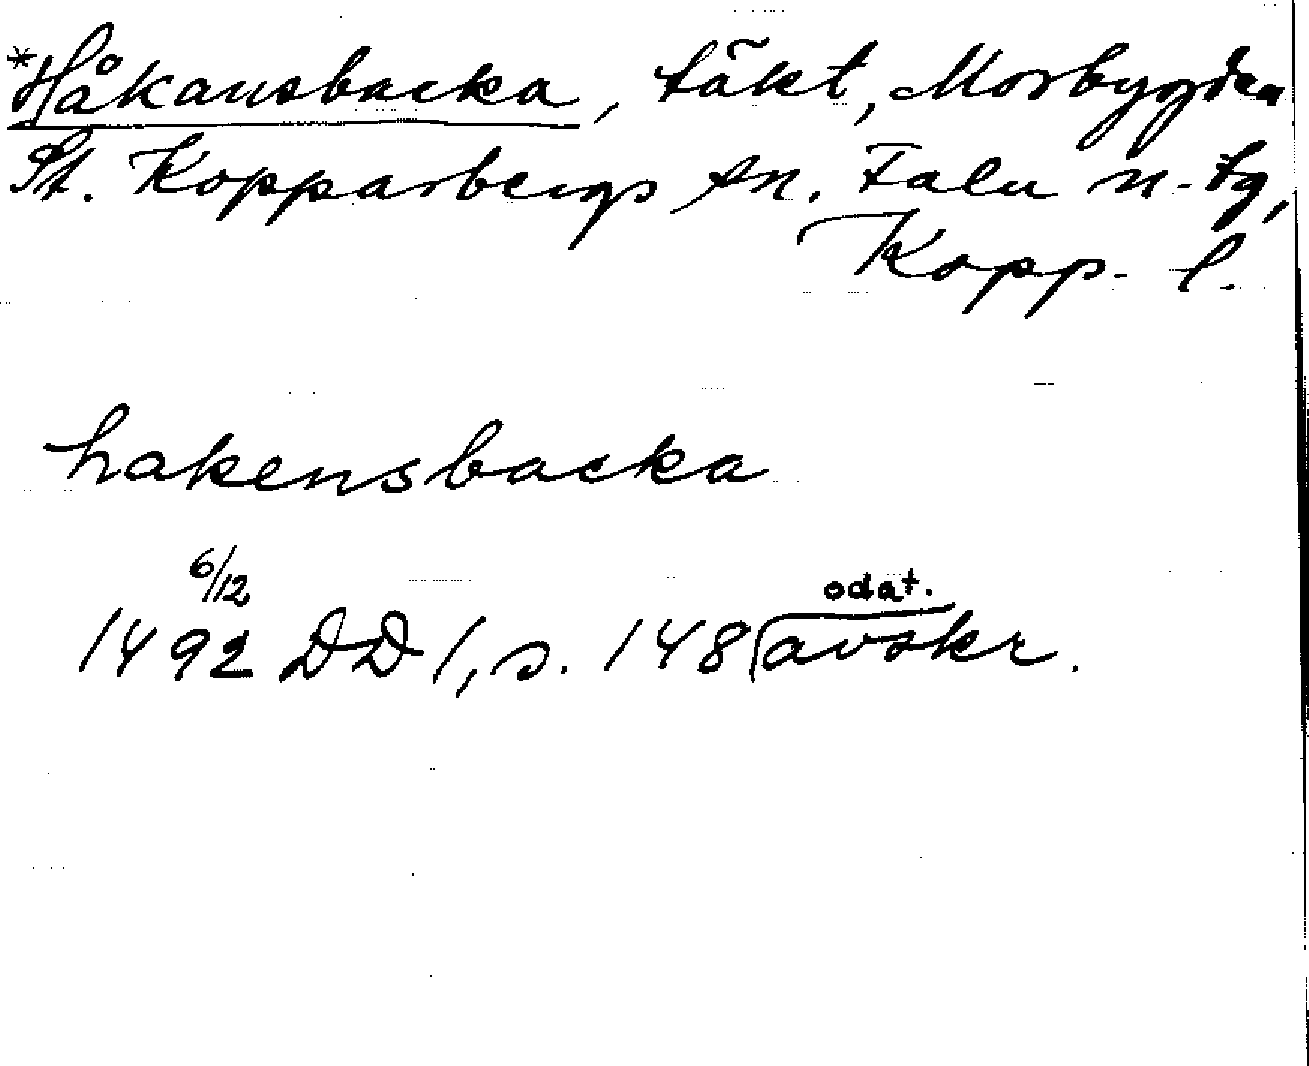 *Håkansbacka, täkt, Morbygden
St. Kopparbergs sn. Falu n. tg,
Kopp. l.
hakensbacka
6/12
odat.
1492 DD 1, s. 148 (avskr.